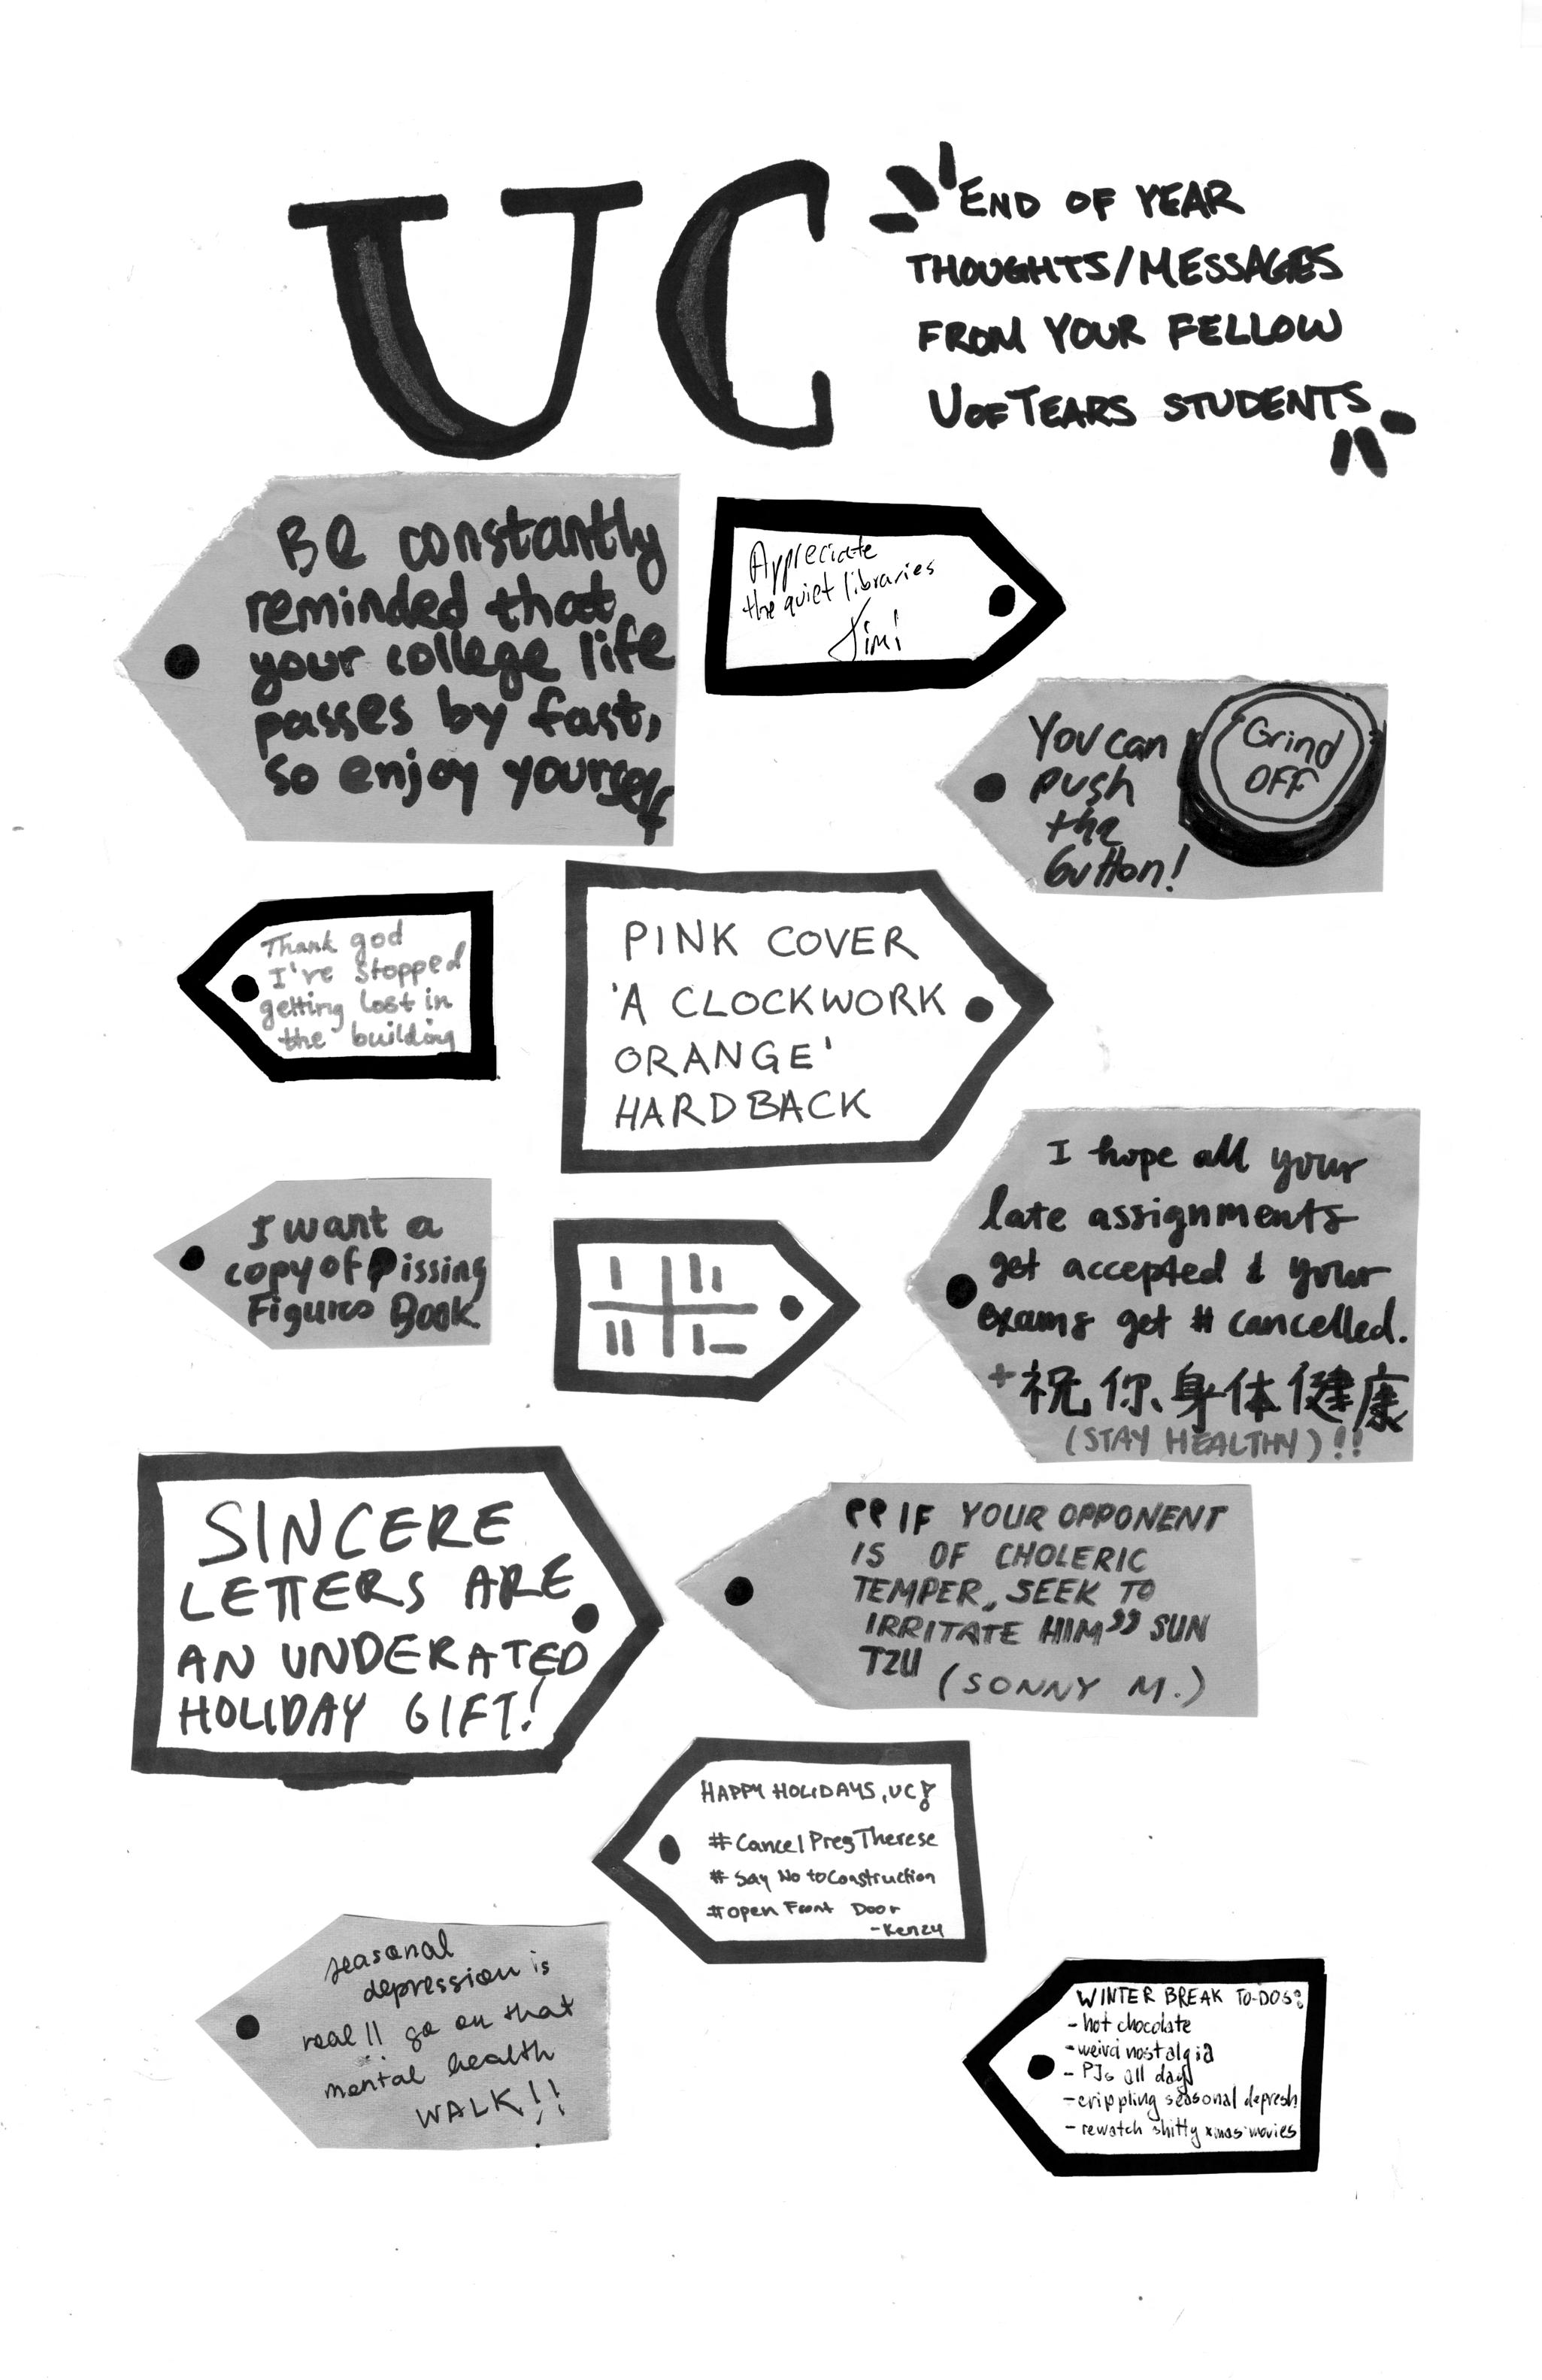 UC
END OF YEAR
THOUGHTS/MESSAGES
FROM YOUR FELLOW
UOFTEARS STUDENTS
Be constantly
reminded that
your college life
passes by fast,
so enjoy yourself
Appreciate
the quiet libraries
Jimi
You can
push
the
button!
Grind
OFF
Thank god
I've stopped
getting lost in
the building
PINK COVER
'A CLOCKWORK
ORANGE'
HARDBACK
I hope all your
late assignments
get accepted & your
exams get # cancelled.
+祝你身体健康
(STAY HEALTHY)!!
I want a
copy of Pissing
Figures Book.
SINCERE
LETTERS ARE
AN UNDERATED
HOLIDAY GIFT!
"IF YOUR OPPONENT
IS OF CHOLERIC
TEMPER, SEEK TO
IRRITATE HIM" SUN
TZU (SONNY M.)
HAPPY HOLIDAYS, UC!
#CancelPregTherese
#Say No toConstruction
#Open Front Door
-Kenzy
seasonal
depression is
real!! go on that
mental health
WALK!!
WINTER BREAK TO-DOS:
- hot chocolate
- weird nostalgia
- PJs all day
- crippling seasonal depresh
- rewatch shitty xmas movies